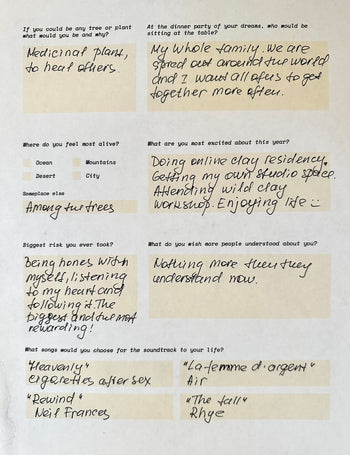 If you could be any tree or plant
what would you be and why?
Medicinal plant,
to heal others.
At the dinner party of your dreams, who would be
sitting at the table?
My whole family. We are
spread out around the world
and I want all of us to get
together more often.
Where do you feel most alive?
Ocean
Mountains
Desert
City
Someplace else
Among the trees
What are you most excited about this year?
Doing online clay residency.
Getting my own studio space.
Attending wild clay
workshop. Enjoying life :)
Biggest risk you ever took?
Being hones with
myself, listening
to my heart and
following it. The
biggest and the most
rewarding!
What do you wish more people understood about you?
Nothing more then they
understand now.
What songs would you choose for the soundtrack to your life?
"Heavenly"
Cigarettes after sex
"La femme d'argent"
Air
"Rewind"
Neil Frances
"The fall"
Rhye